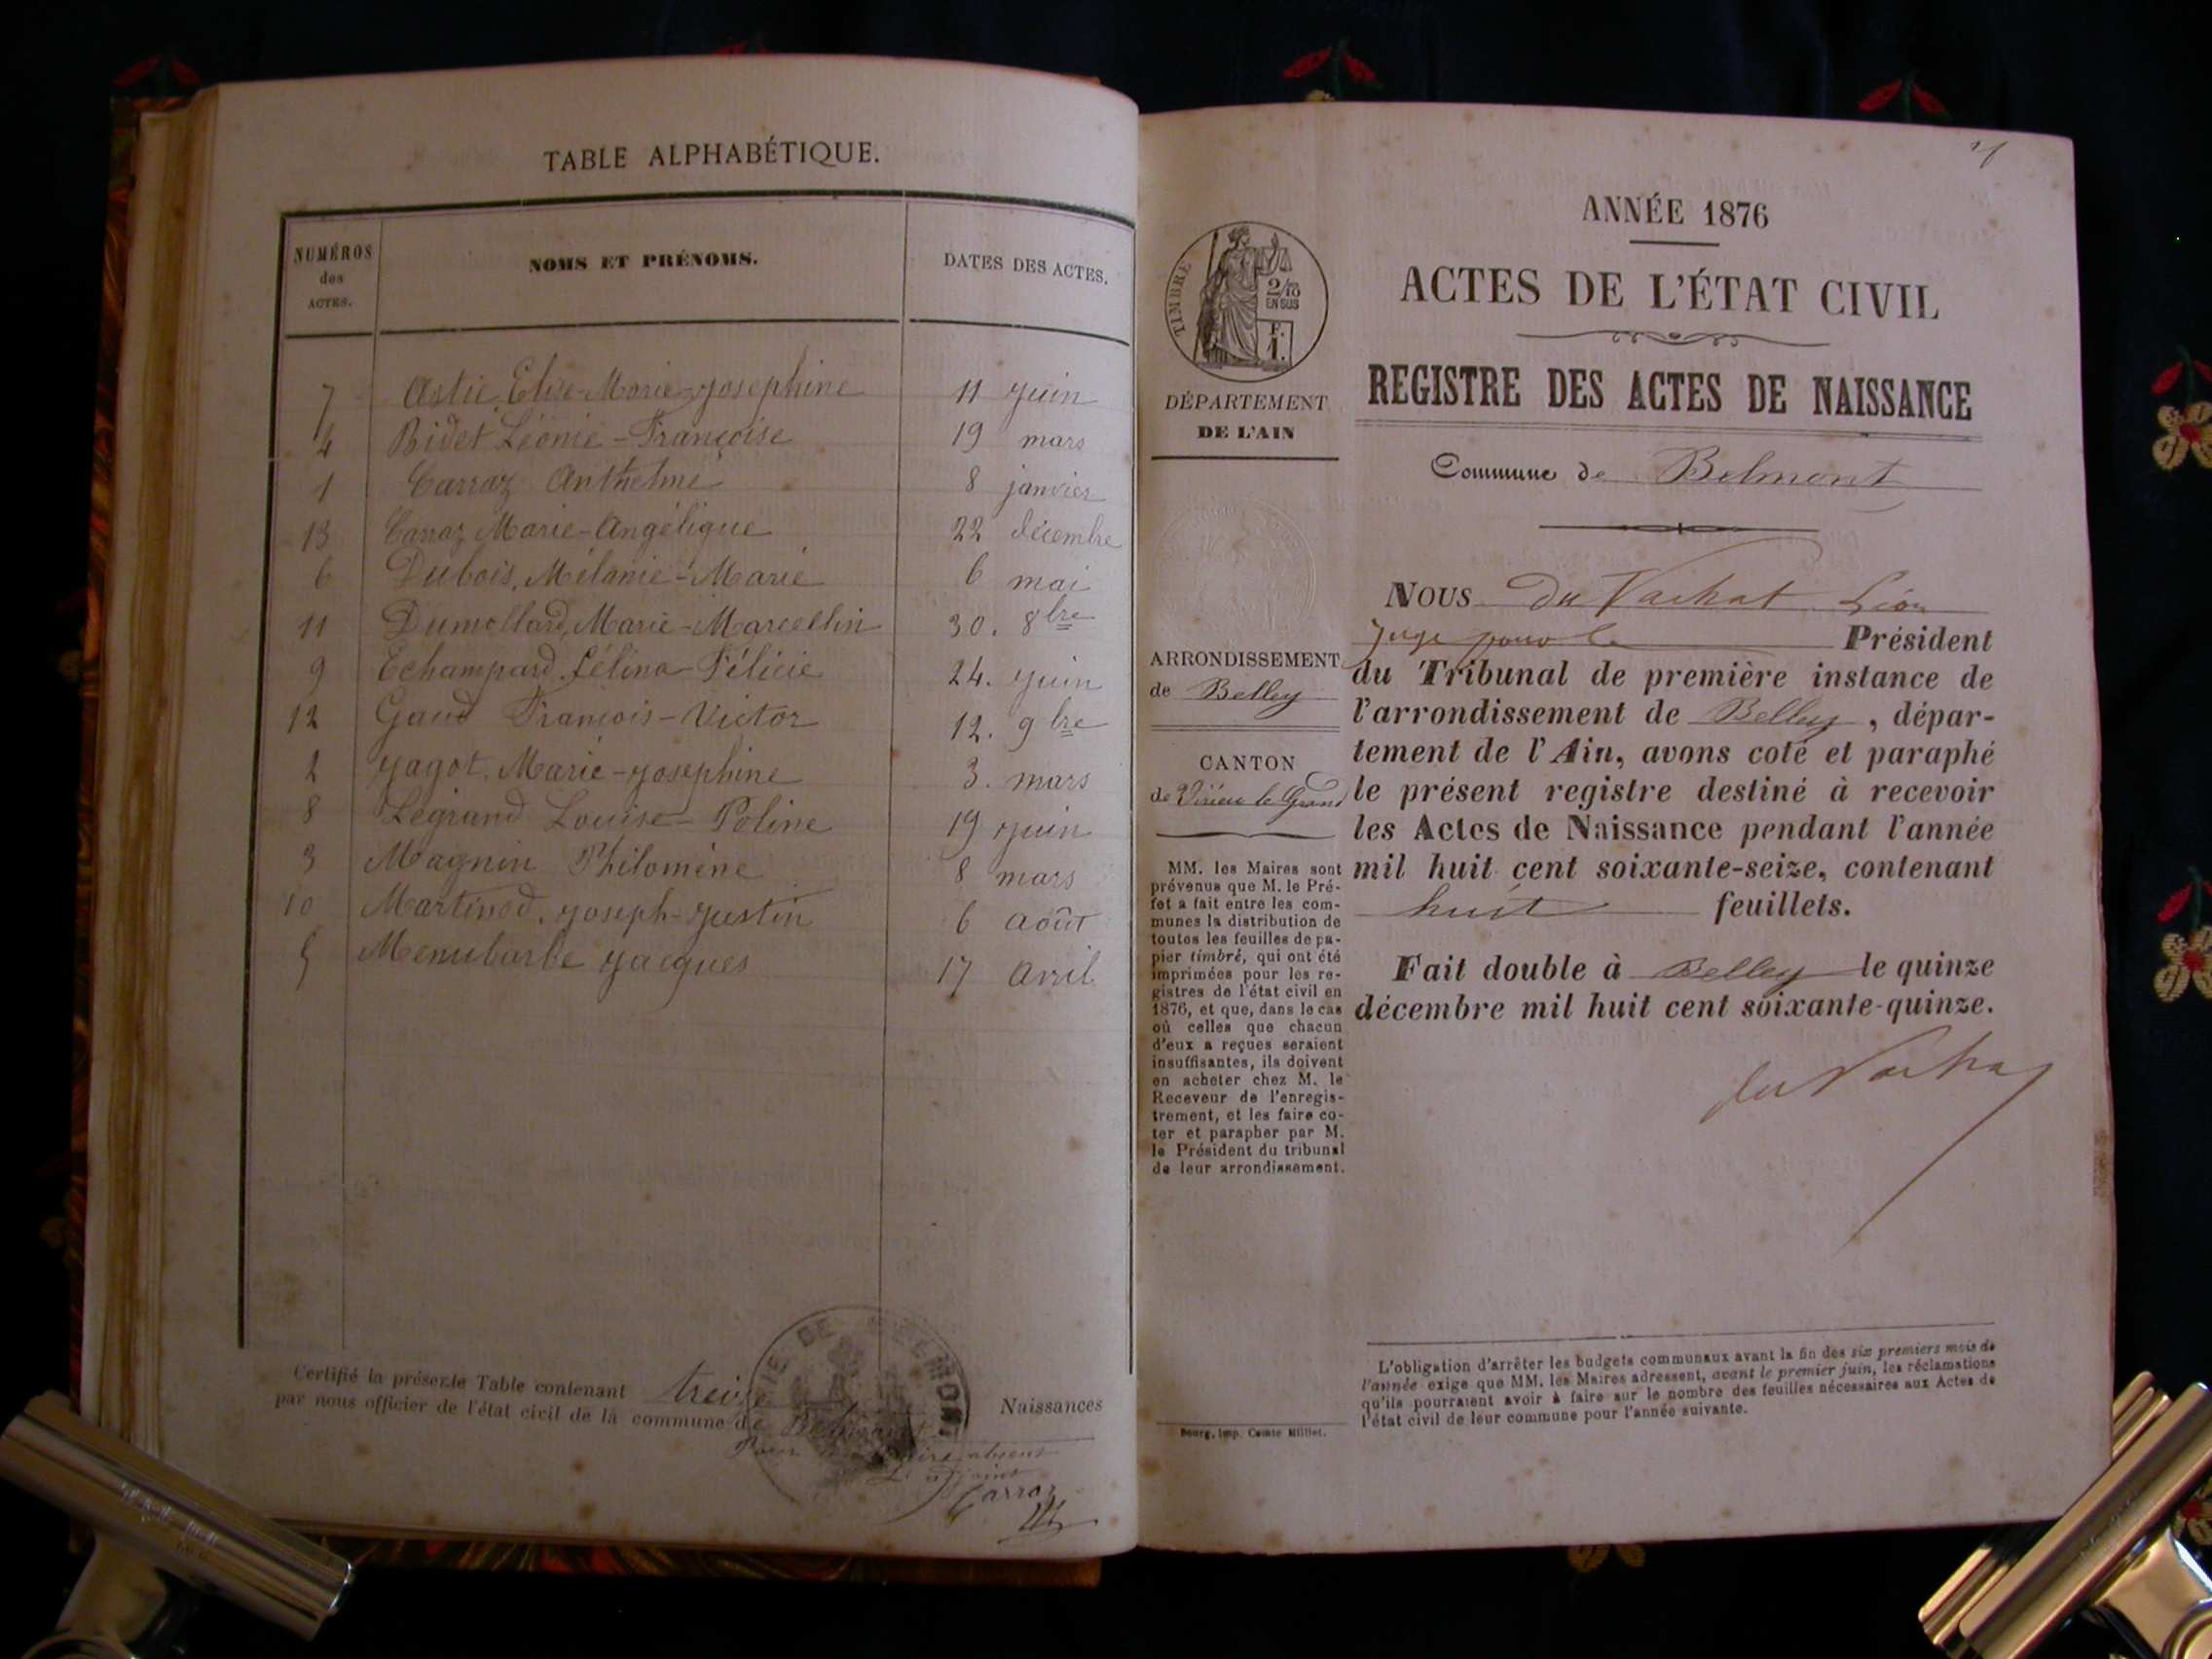 TABLE ALPHABÉTIQUE.
NUMÉROS
des
ACTES.
NOMS ET PRÉNOMS.
DATES DES ACTES.
7 Astic Elise-Marie-Josephine 11 juin
4 Bidet Léonie-Françoise 19 mars
1 Carraz Anthelme 8 janvier
13 Carraz Marie-Angélique 22 décembre
6 Dubois, Mélanie-Marie 6 mai
11 Dumollard, Marie-Marcellin 30. 8bre
9 Echampard Célina-Félicie 24. juin
12 Gaud François-Victor 12. 9bre
2 Jagot, Marie-Josephine 3. mars
8 Legrand Louise-Poline 19 juin
3 Magnin Philomène 8 mars
10 Martinod, Joseph-Justin 6 Août
5 Menubarbe Jacques 17 Avril
Certifié la présente Table contenant treize Naissances
par nous officier de l'état civil de la commune de Belmont
Pour le Maire absent
L'adjoint
Carraz
ANNÉE 1876
ACTES DE L'ÉTAT CIVIL
REGISTRE DES ACTES DE NAISSANCE
Commune de Belmont
TIMBRE
2/10
EN SUS
F.
1.
DÉPARTEMENT
DE L'AIN
ARRONDISSEMENT
de Belley
CANTON
de Virieu le Grand
MM. les Maires sont
prévenus que M. le Pré-
fet a fait entre les com-
munes la distribution de
toutes les feuilles de pa-
pier timbré, qui ont été
imprimées pour les re-
gistres de l'état civil en
1876, et que, dans le cas
où celles que chacun
d'eux a reçues seraient
insuffisantes, ils doivent
en acheter chez M. le
Receveur de l'enregis-
trement, et les faire co-
ter et parapher par M.
le Président du tribunal
de leur arrondissement.
Bourg, imp. Comte Milliet.
NOUS du Vachat Léon
Juge pour le Président
du Tribunal de première instance de
l'arrondissement de Belley, dépar-
tement de l'Ain, avons coté et paraphé
le présent registre destiné à recevoir
les Actes de Naissance pendant l'année
mil huit cent soixante-seize, contenant
huit feuillets.
Fait double à Belley le quinze
décembre mil huit cent soixante-quinze.
du Vachat
L'obligation d'arrêter les budgets communaux avant la fin des six premiers mois de
l'année exige que MM. les Maires adressent, avant le premier juin, les réclamations
qu'ils pourraient avoir à faire sur le nombre des feuilles nécessaires aux Actes de
l'état civil de leur commune pour l'année suivante.